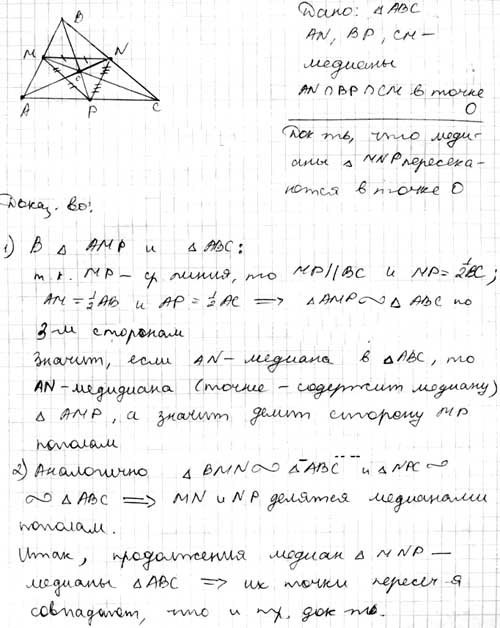 B
M
N
o
A
P
C
Дано: △ABC
AN, BP, CM —
медианы
AN∩BP∩CM в точке
O
Док-ть, что меди-
аны △MNP пересека-
ются в точке O
Доказ-во:
1) В △AMP и △ABC:
т.к. MP — ср. линия, то MP∥BC и MP=½BC;
AM=½AB и AP=½AC ⟹ △AMP∾△ABC по
3-м сторонам
Значит, если AN-медиана в △ABC, то
AN-медидиана (точнее - содержит медиану)
△AMP, а значит делит сторону MP
пополам
2) Аналогично △BMN∾△ABC и △NPC∾
∾△ABC ⟹ MN и NP делятся медианами
пополам.
Итак, продолжения медиан △MNP —
медианы △ABC ⟹ их точки пересеч-я
совпадают, что и тр. док-ть.